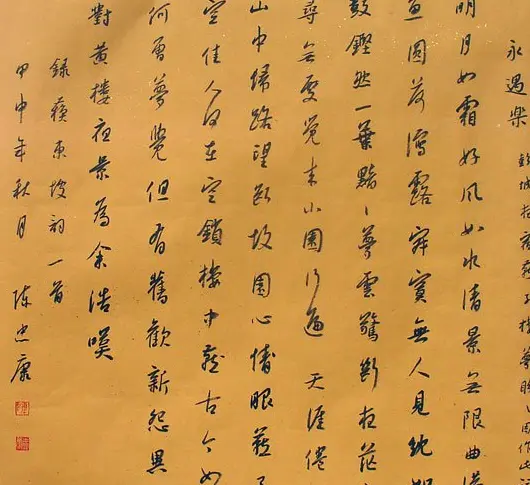 永遇樂 彭城夜宿燕子樓夢盼盼因作此
明月如霜好風如水清景无限曲港
魚圓荷瀉露寂寞無人見紞如
鼓鏗然一葉黯黯夢雲驚斷夜茫
尋无處覺來小園行遍天涯倦
山中歸路望斷故園心情眼燕
空佳人何在空鎖樓中燕古今如
何曾夢覺但有舊歡新怨異
對黃樓夜景為余浩嘆
錄蘇東坡詞一首
甲申年秋月 陳忠康